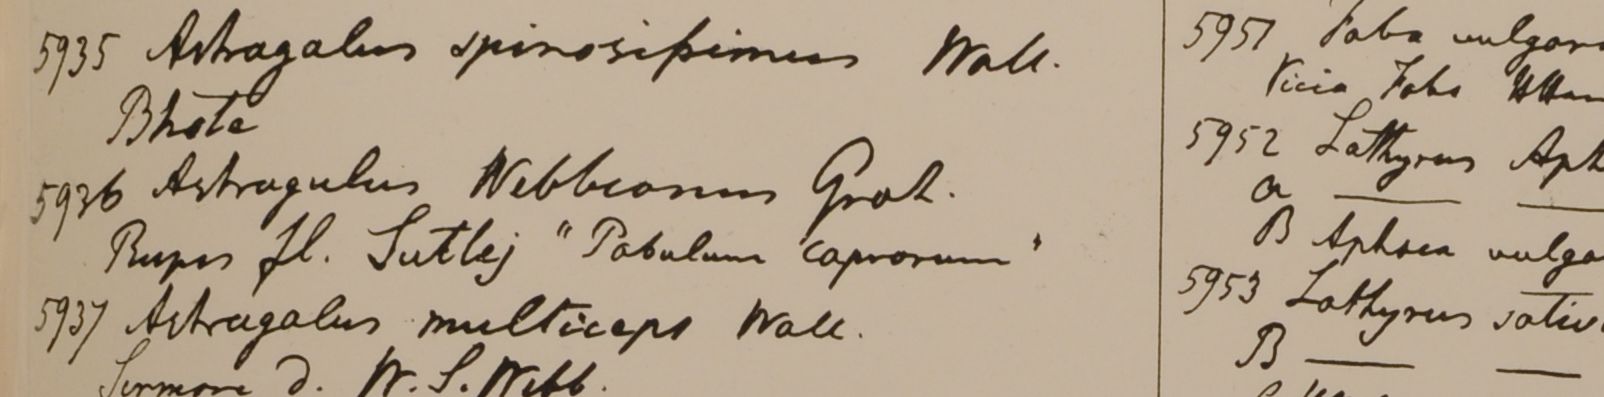 5935 Astragalus spinosissimus Wall.
Bhote
5936 Astragulus Webbianus Grah.
Rupes fl. Sutlej "Pabulum caprorum"
5937 Astragalus multiceps Wall.
Sirmore d. W. S. Webb.
5951 Faba vulgari
Vicia Faba Ham
5952 Lathyrus Aph
a — —
B Aphaca vulga
5953 Lathyrus sativ
B — —